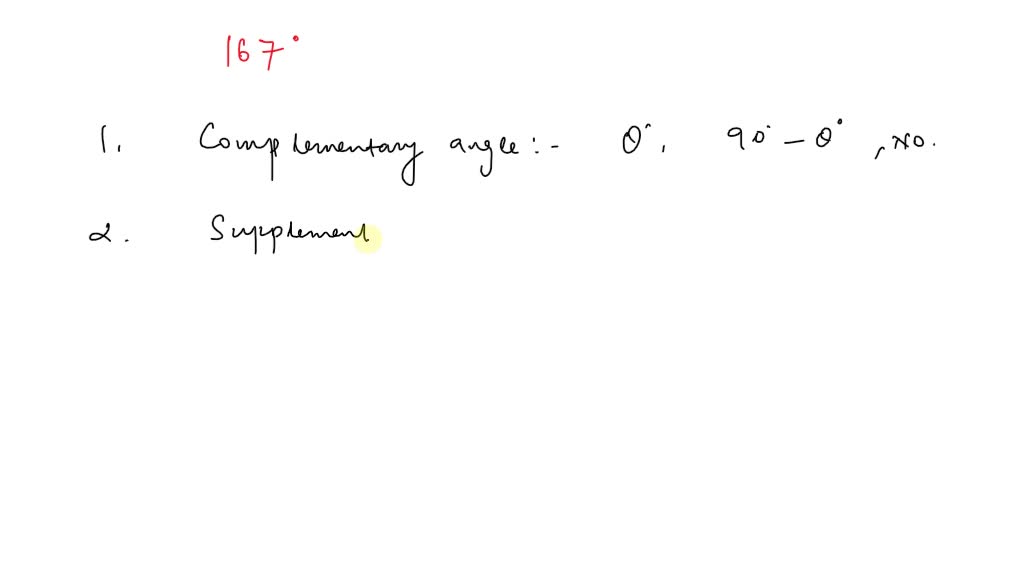 167°
1. Complementary angle :- θ°, 90° - θ°, NO.
2. Supplement